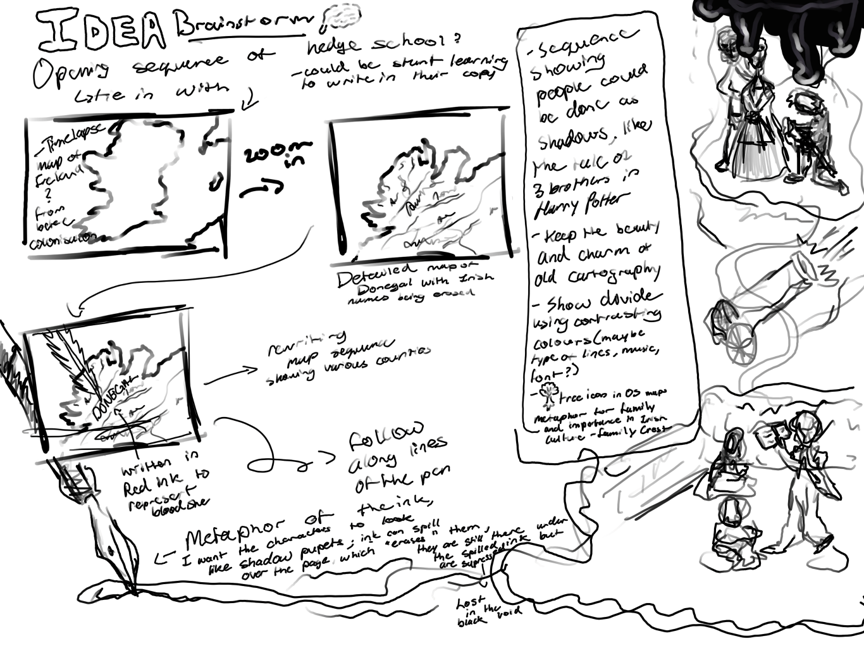 IDEA Brainstorm
Opening sequence of hedge school?
- could be stunt learning
to write in their copy
Later in with
- Timelapse
map of
Ireland
?
from
before
colonisation
zoom
in
Detailed map of
Donegal with Irish
names being erased
DONEGAL
written in
Red ink to
represent
bloodshed
rewriting
map sequence
showing various counties
Follow
along lines
of the pen
Metaphor of the ink,
I want the characters to look
like shadow puppets, ink can spill
over the page which "erases" them,
they are still there under
the spilled ink but
are supressed
Lost
in the
black void
- Sequence
showing
people could
be done as
shadows, like
the tale of
3 brothers in
Harry Potter
- Keep the beauty
and charm of
old cartography
- Show divide
using contrasting
colours (maybe
type of lines, music,
font?)
- tree icon in OS maps
metaphor for family
and importance in Irish
culture - family Crest